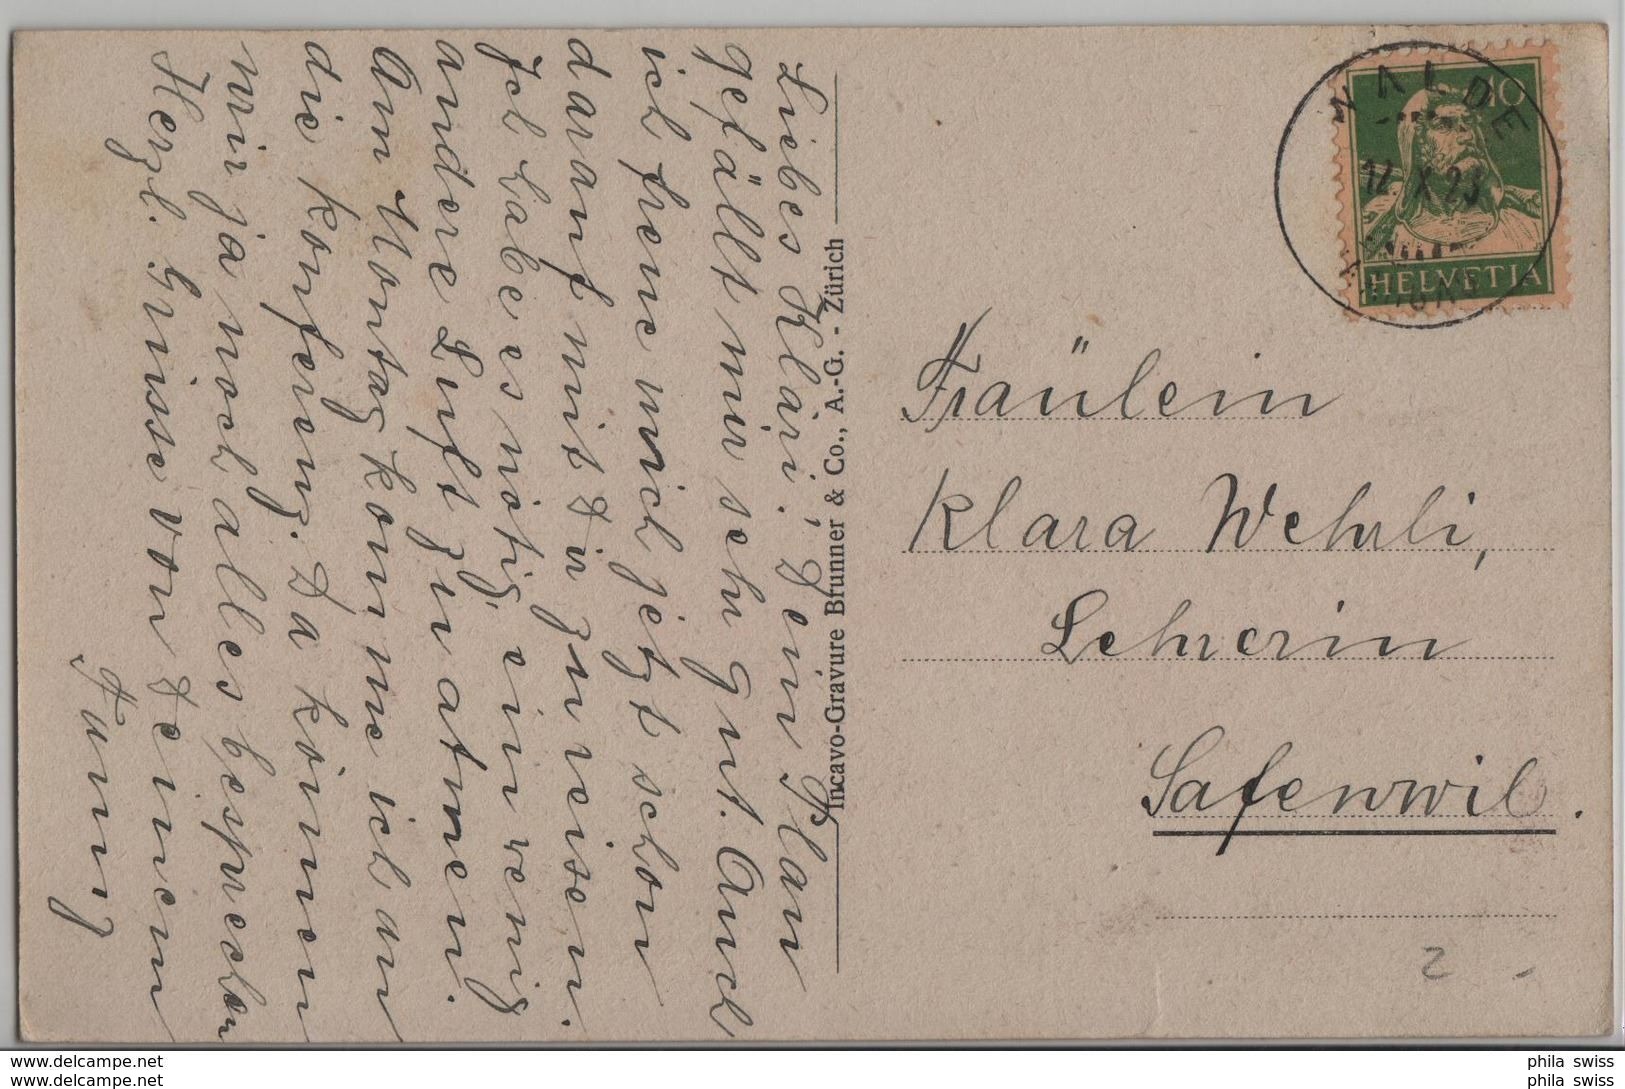 Liebes Kläri! Dein Plan
gefällt mir sehr gut. Auch
ich freue mich jetzt schon
darauf mit Dir zu reisen.
Ich habe es nötig, ein wenig
andere Luft zu atmen.
Am Montag komme ich an
die Konferenz. Da können
wir ja noch alles besprechen
Herzl. Grüsse von Deinem
Fanny
Incavo-Gravure Brunner & Co., A.-G. - Zürich
WALDE
12. X. 23
10
HELVETIA
Fräulein
Klara Wehrli,
Lehrerin
Safenwil.
2
delcampe.net
delcampe.net
phila swiss
phila swiss